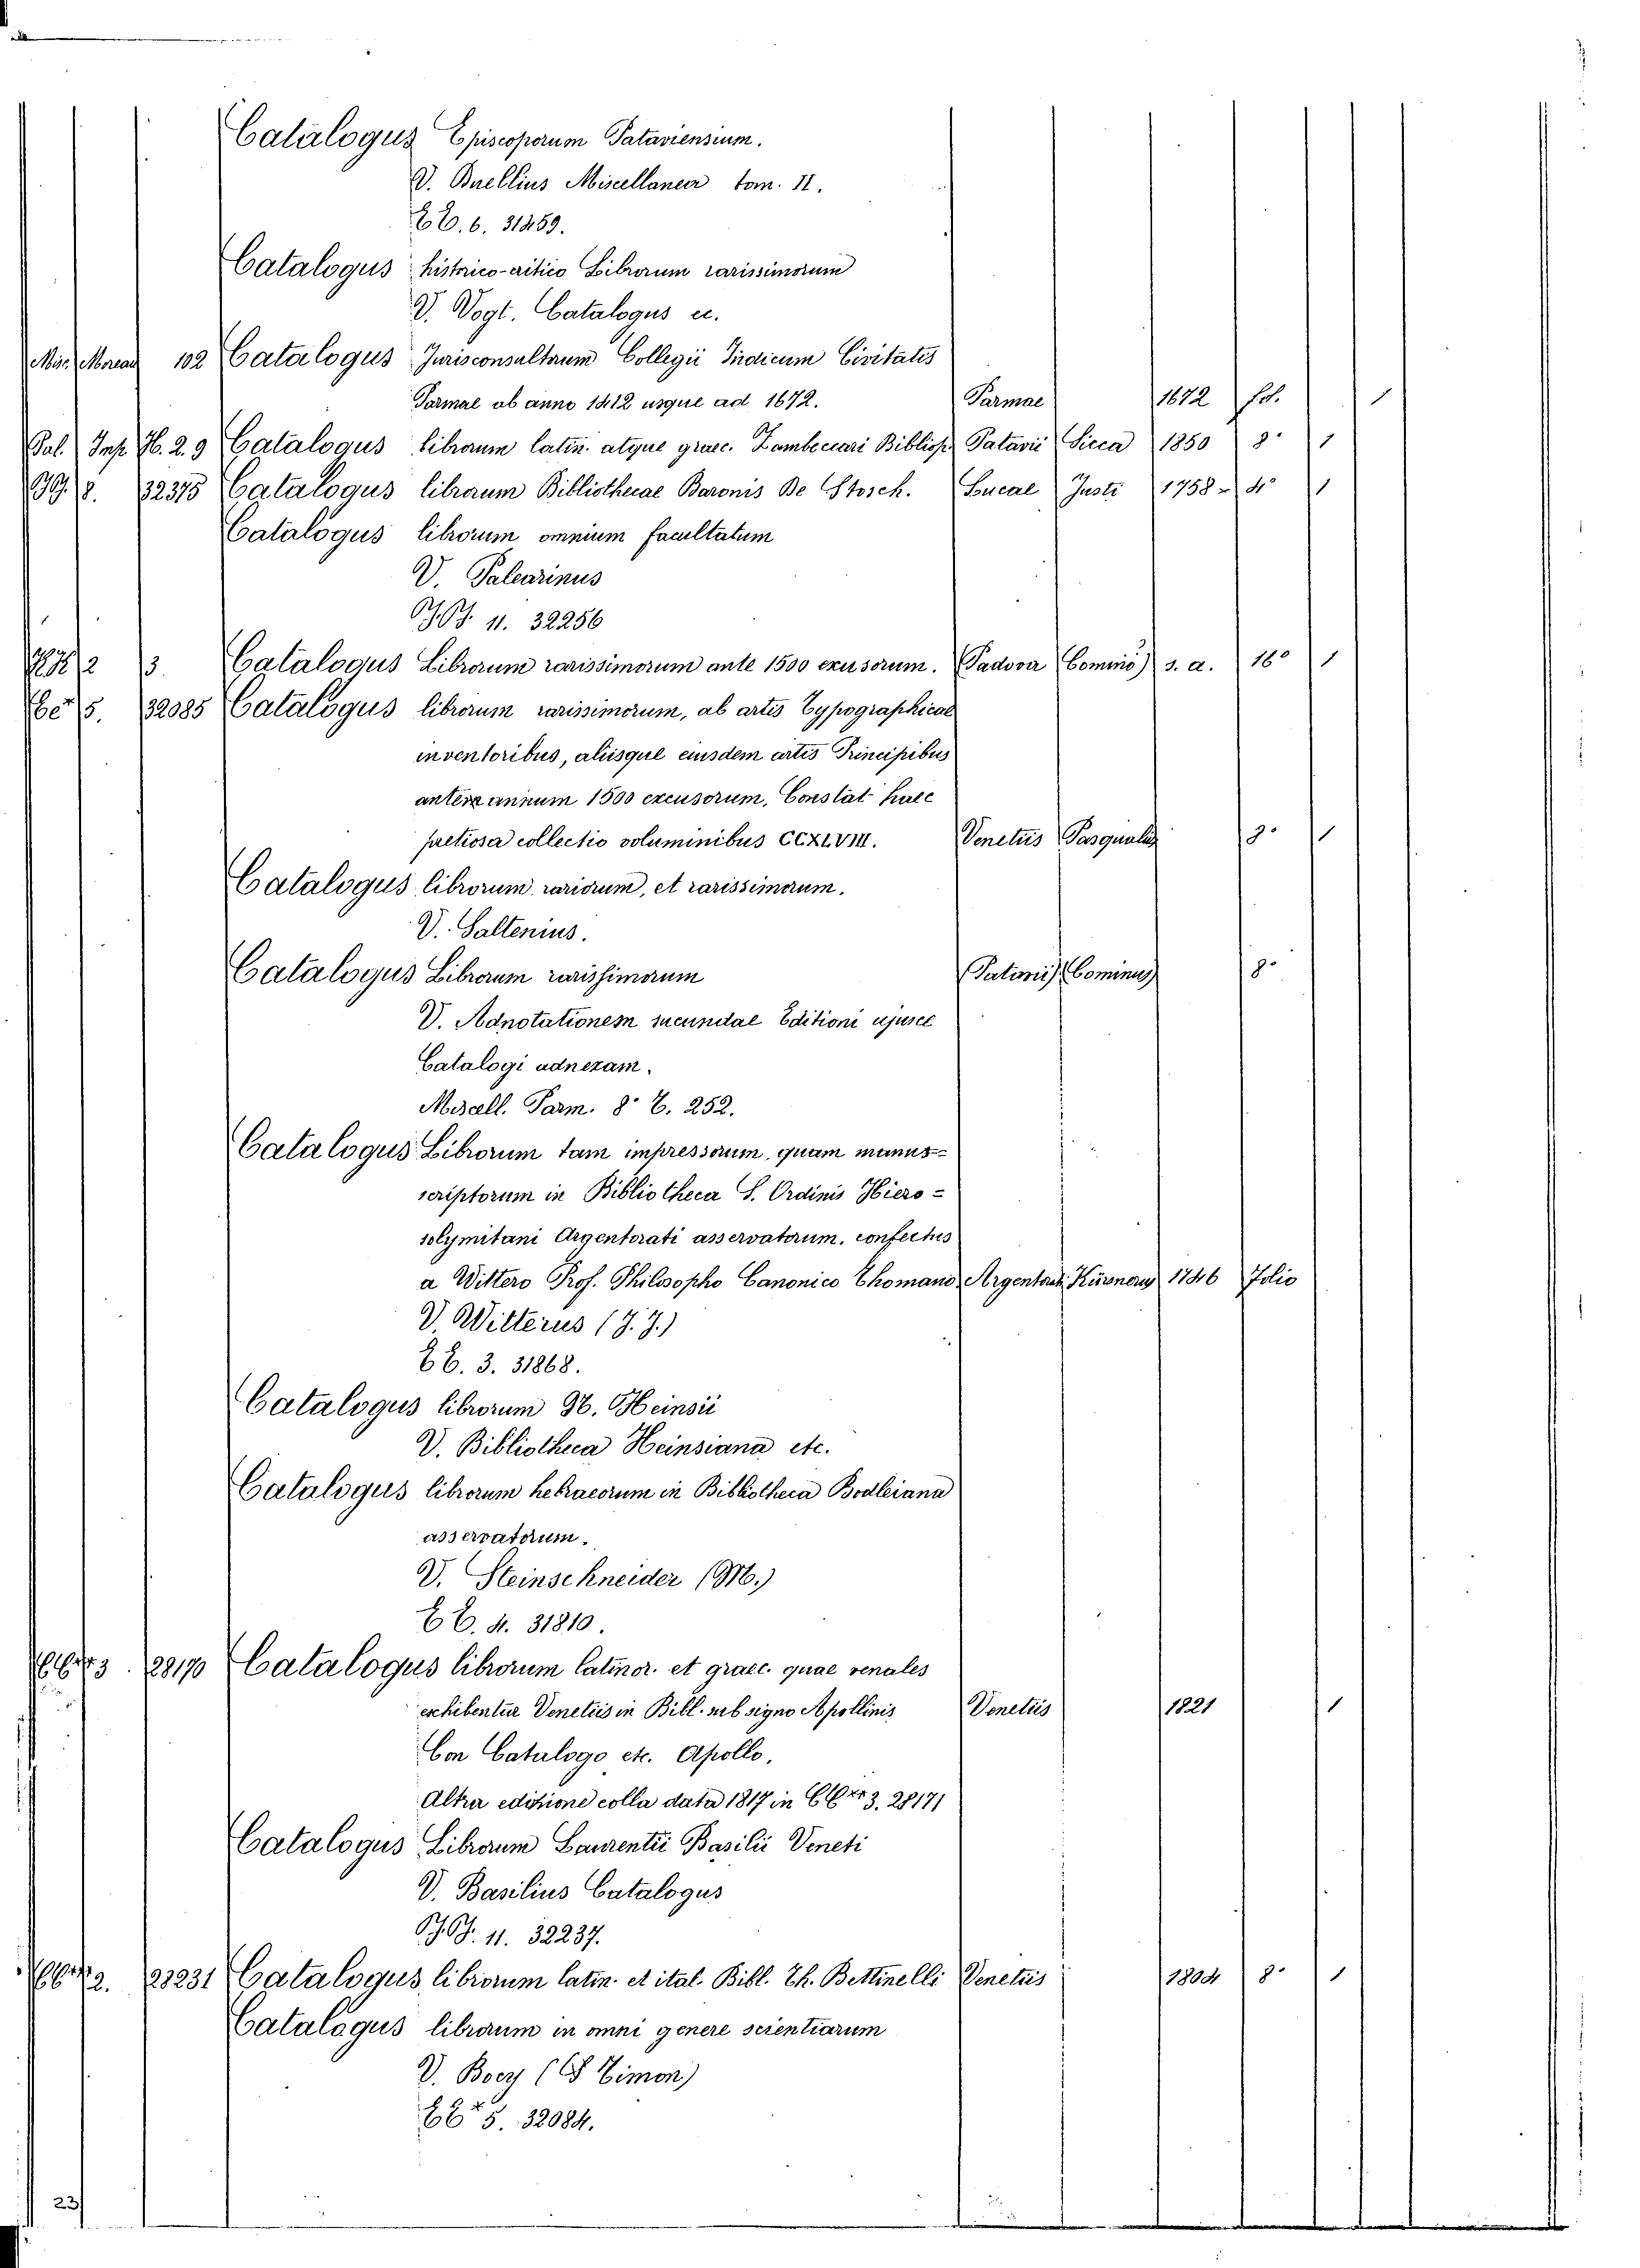 Catalogus Episcoporum Pataviensium.
V. Buellius Miscellanea tom. II.
E E. 6. 31459.
Catalogus historico-critico Librorum rarissimorum
V. Vogt. Catalogus ec.
102 Catalogus Jurisconsultorum Collegii Judicum Civitatis
Parmae ab anno 1412 usque ad 1672. Parmae 1672 fol. 1
Pal. Imp. H. 2. 9 Catalogus librorum latin. atque graec. Zambeccari Bibliop. Patavii Sicca 1850 8° 1
8. 32375 Catalogus librorum Bibliothecae Baronis De Stosch. Lucae Justi 1758 4° 1
Catalogus librorum omnium facultatum
V. Palearinus
11. 32256
2 3. Catalogus Librorum rarissimorum ante 1500 excusorum. Padova (Comino) s. a. 16° 1
5. 32085 Catalogus librorum rarissimorum, ab artis Typographicae
inventoribus, aliisque eiusdem artis Principibus
ante annum 1500 excusorum. Constat haec
pretiosa collectio voluminibus CCXLVIII. Venetiis Pasqualis 8° 1
Catalogus librorum rariorum, et rarissimorum.
V. Saltenius.
Catalogus Librorum rarissimorum (Patavii) (Cominus) 8°
V. Adnotationem secundae Editioni
Catalogi adnexam.
Miscell. Parm. 8° E. 252.
Catalogus Librorum tam impressorum, quam manus-
scriptorum in Bibliotheca S. Ordinis Hiero-
solymitani Argentorati asservatorum, confectus
a Wittero Prof. Philosopho Canonico Thomano Argentorati Kürnerus 1746 Folio
V. Witterus (J. J.)
E E. 3. 31868.
Catalogus librorum N. Heinsii
V. Bibliotheca Heinsiana etc.
Catalogus librorum hebraeorum in Bibliotheca Bodleiana
asservatorum.
V. Steinschneider (M.)
E E. 4. 31810.
3. 28170 Catalogus librorum latinor. et graec. quae venales
exhibentur Venetiis in Bibl. sub signo Apollinis Venetiis 1821 1
Con Catalogo etc. Apollo.
Altra edizione colla data 1817 in 3. 28171
Catalogus Librorum Laurentii Basilii Veneti
V. Basilius Catalogus
11. 32237.
2. 28231 Catalogus librorum latin. et ital. Bibl. Th. Bettinelli Venetiis 1804 8° 1
Catalogus librorum in omni genere scientiarum
V. Bocy
5. 32084.
23